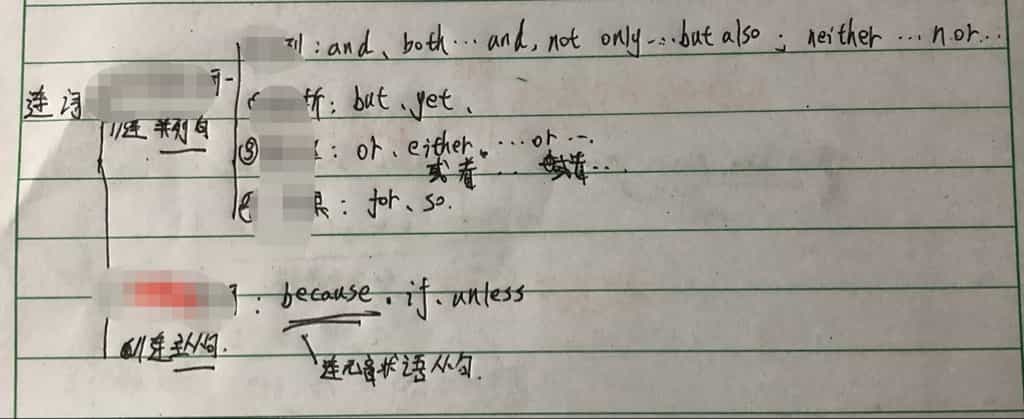 列: and、both…and, not only…but also; neither…nor…
连词
折: but、yet、
连并列句
③ : or、either…or…
或者…或者…
果: for、so.
: because、if、unless
连主从句.
状语从句.